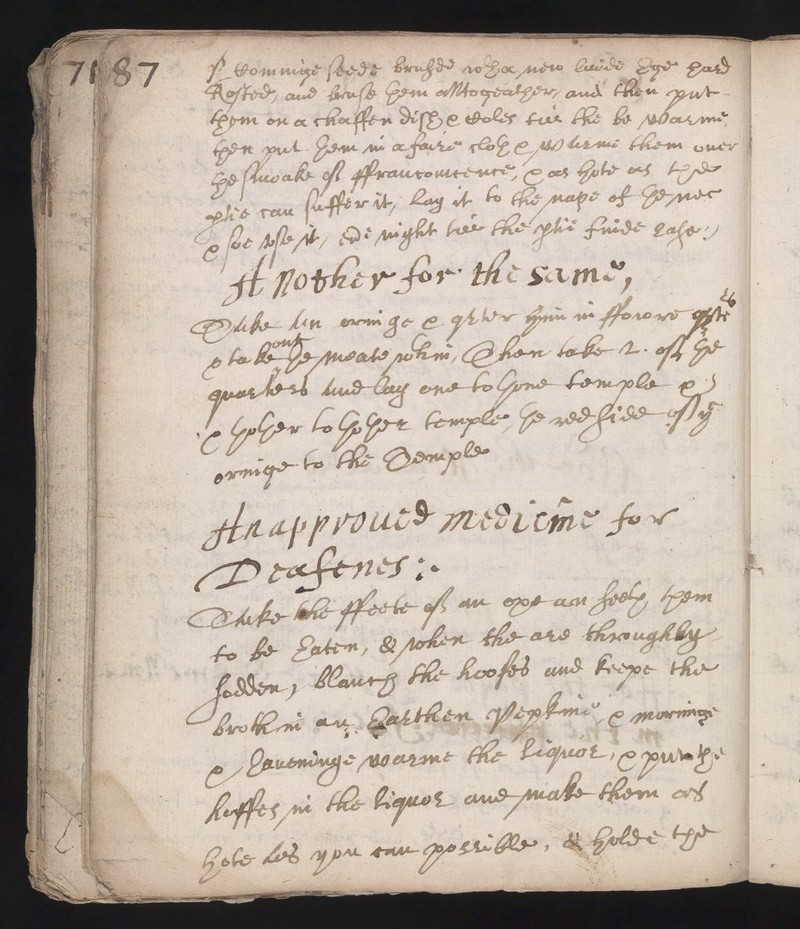 71 87
Commige seede brused wth a new laide Egge hard
Rosted, and bruse hem alltogeather, and then put
them on a chaffen dish & Coles till the be warme
then put hem in a faire cloth & warme them over
the smoake of ffrancomcence, & as hote as the
ptie can suffer it, lay it to the nape of he nec
& soe use it, eve night till the ptie finde Ease :)
Another for the same,
Take an oringe & qrter him in ffowre qrters
& take out he meate wthin, Then take 2. off he
quarters and lay one to thone temple &
& thother to thother temple, he red side off ye
oringe to the Temple
An approued medicine for
Deafenes :.
Take the ffeete off an oxe an seeth them
to be Eaten, & when the are throughly
sodden, blanch the hoofes and keepe the
broth in an Earthen Pepkine, & morninge
& Eaueninge warme the Liquor, & put the
huffes in the liquor and make them as
hote as you can possible, & holde the